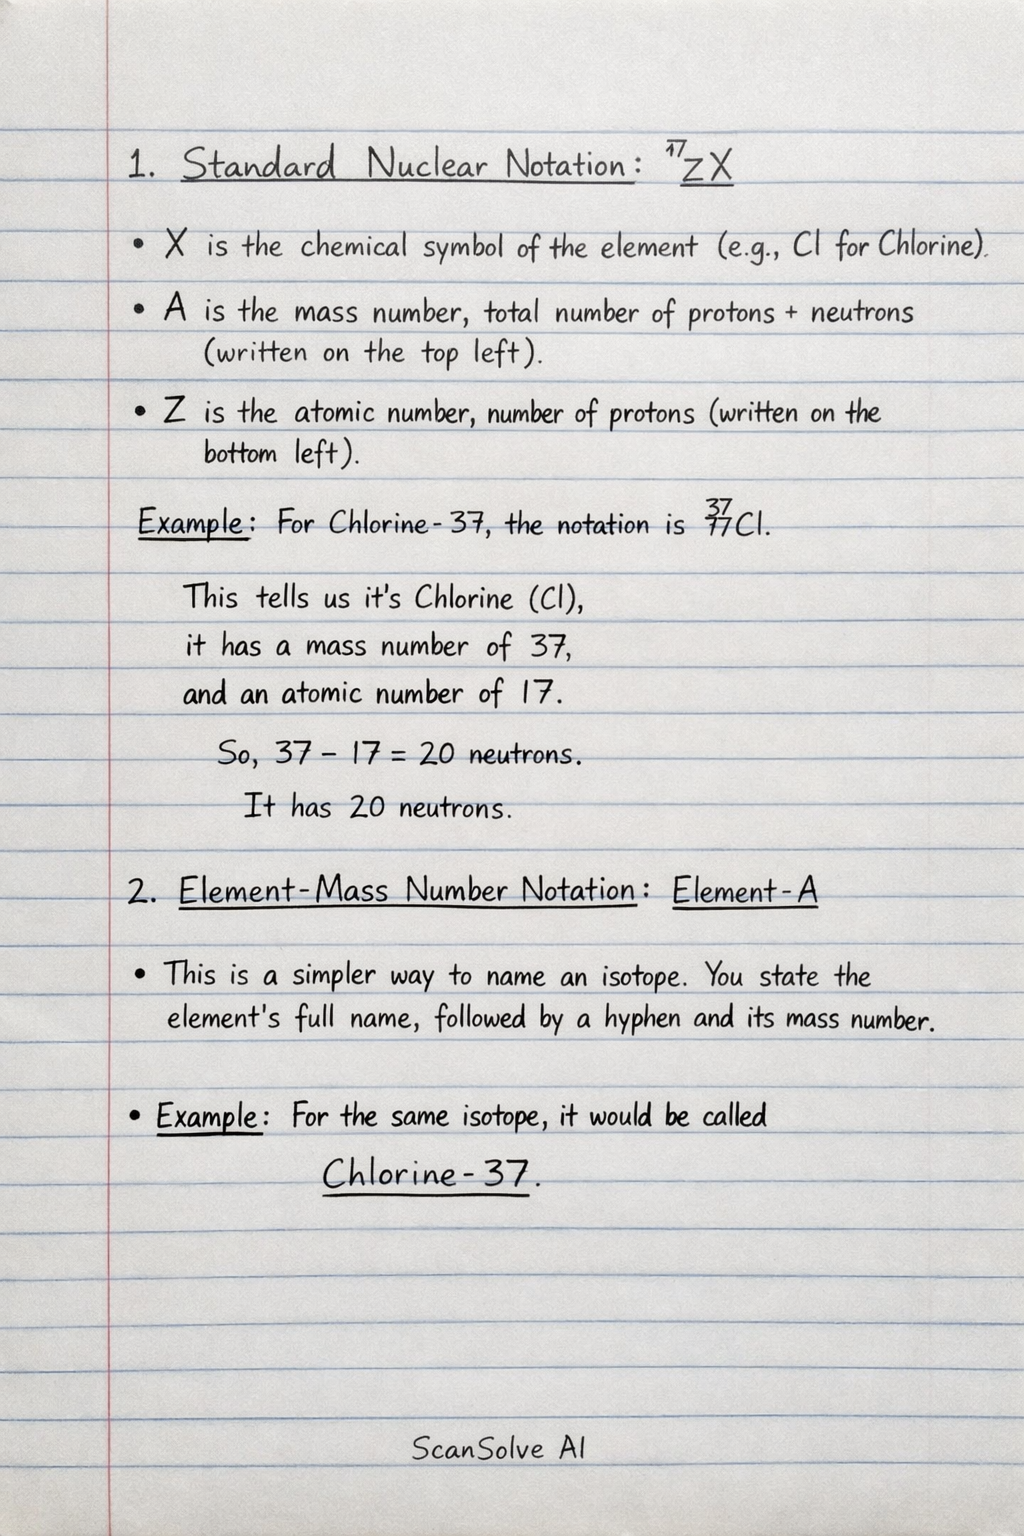 1. Standard Nuclear Notation: ¹⁷ZX
• X is the chemical symbol of the element (e.g., Cl for Chlorine).
• A is the mass number, total number of protons + neutrons
(written on the top left).
• Z is the atomic number, number of protons (written on the
bottom left).
Example: For Chlorine-37, the notation is ³⁷₇₇Cl.
This tells us it's Chlorine (Cl),
it has a mass number of 37,
and an atomic number of 17.
So, 37 − 17 = 20 neutrons.
It has 20 neutrons.
2. Element-Mass Number Notation: Element-A
• This is a simpler way to name an isotope. You state the
element's full name, followed by a hyphen and its mass number.
• Example: For the same isotope, it would be called
Chlorine-37.
ScanSolve AI